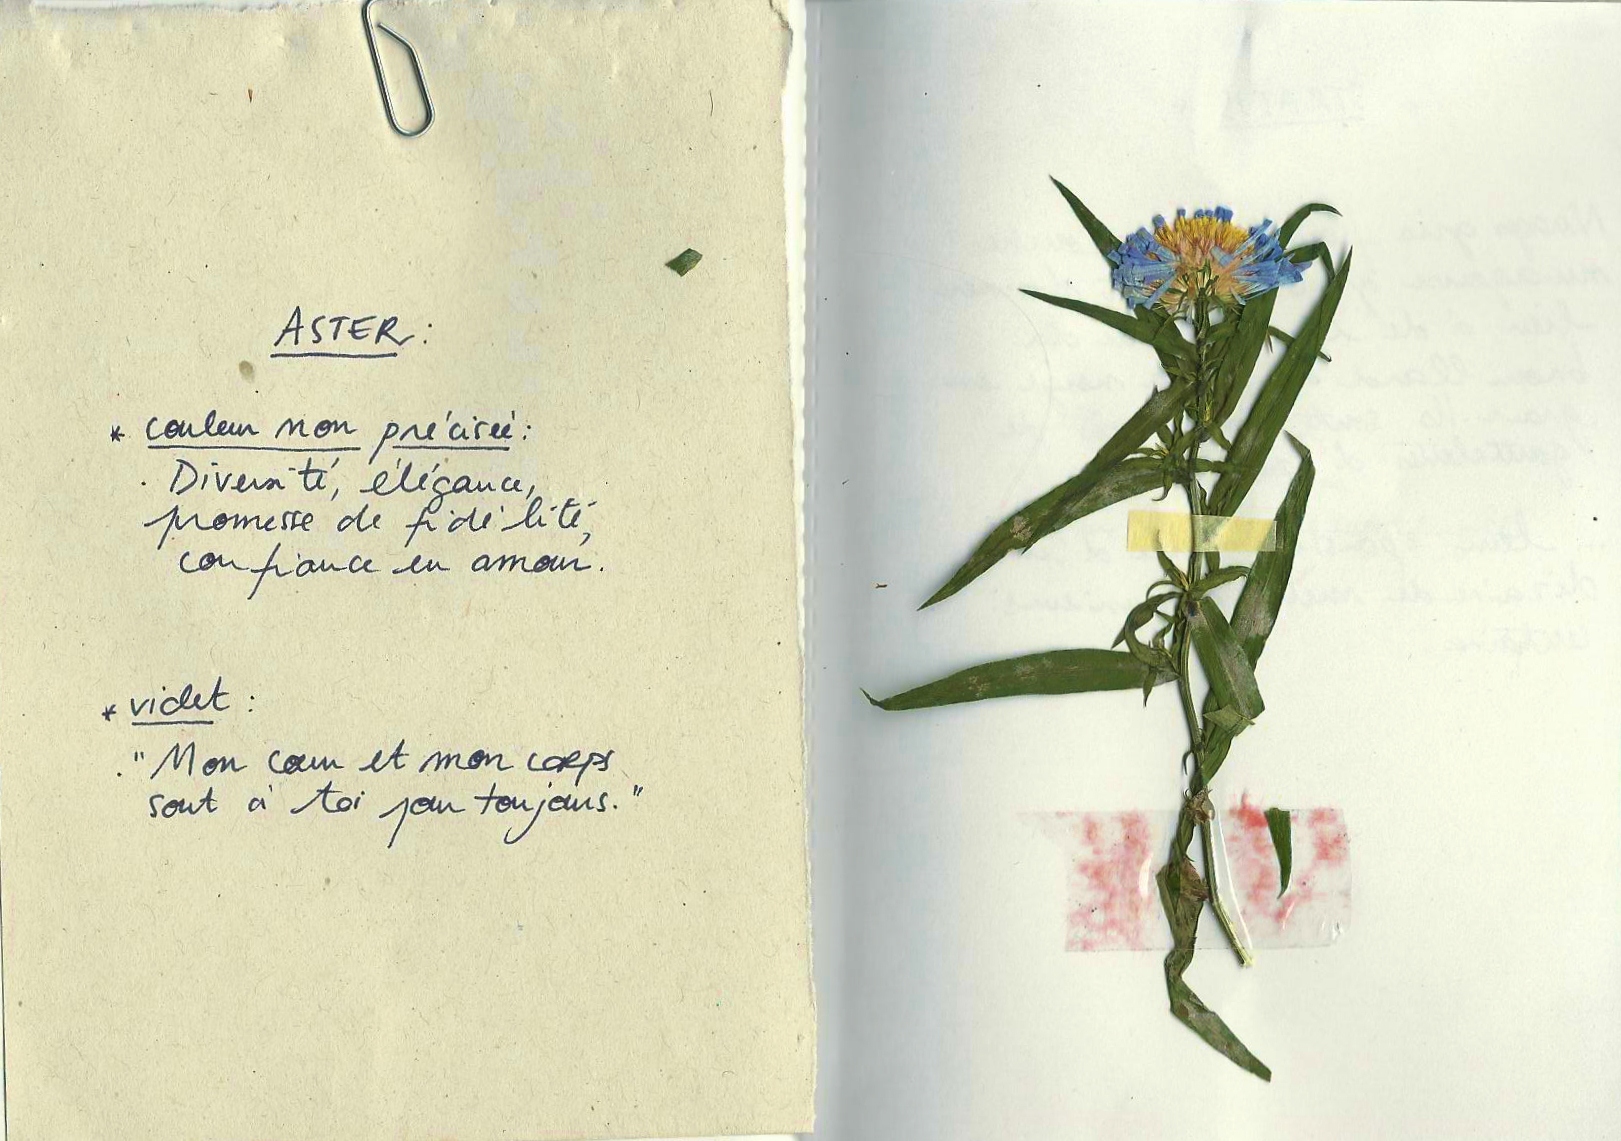 ASTER :
* couleur non précisée :
. Diversité, élégance,
promesse de fidélité,
confiance en amour.
* violet :
. "Mon cœur et mon corps
sont à toi pour toujours."